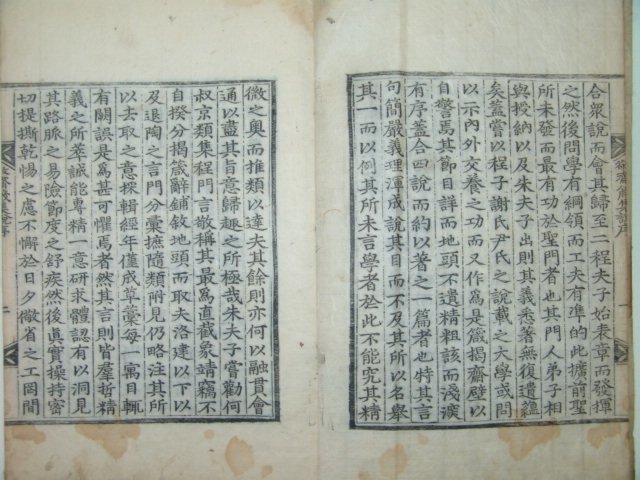 合衆說而會其歸至二程夫子始表章而發揮
之然後問學有綱領而工夫有準的此擴前聖
所未發而最有功於聖門者也其門人弟子相
與授納以及朱夫子出則其義悉著無復遺蘊
矣蓋嘗以程子謝氏尹氏之說載之大學或問
以示內外交養之功而又作為是箴揭齋壁以
自警焉其節目詳而地頭不遺精粗該而淺深
有序蓋合四說而約以著之一篇者也特其言
句簡嚴義理渾成說其目而不及其所以名舉
其一而以例其所未言學者於此不能究其精
微之奧而推類以達夫其餘則亦何以融貫會
通以盡其旨意歸趣之所極哉朱夫子嘗勸何
叔京類集程門言敬稱其最爲直截象靖竊不
自揆分揭箴辭鋪敘地頭而取夫洛建以下以
及退陶之言門分彙摭隨類附見仍略注其所
以去取之意探輯經年僅成草藁每一寓目輒
有關誤是爲甚可懼焉者然其言則皆羣哲精
義之所萃誠能專精一意研求體認有以洞見
其路脈之易險節度之舒疾然後眞實操持密
切提撕乾惕之慮不懈於日夕儆省之工罔間